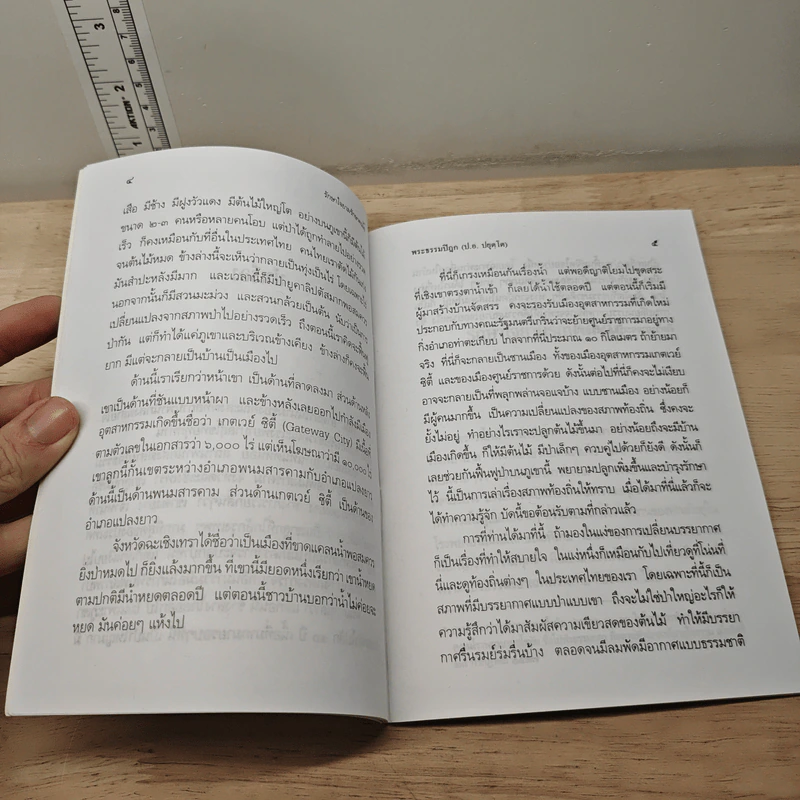 3
8
7
6
2
5
ACTION
4
1
3
๔
รักษาใจยาม
เสือ มีช้าง มีฝูงวัวแดง มีต้นไม้ใหญ่โต อย่างบนภูเขานี้
ขนาด ๒-๓ คนหรือหลายคนโอบ แต่ป่าได้ถูกทำลายไปอย่าง
เร็ว ก็คงเหมือนกับที่อื่นในประเทศไทย คนไทยเราตัดไม้
จนต้นไม้หมด ข้างล่างนี้จะเห็นว่ากลายเป็นทุ่งเป็นไร่
มันสำปะหลังมีมาก และเวลานี้ก็มีป่ายูคาลิปตัสมาก
นอกจากนั้นก็มีสวนมะม่วง และสวนกล้วยเป็นต้น นับว่าเป็นการ
เปลี่ยนแปลงจากสภาพป่าไปอย่างรวดเร็ว ถึงตอนนี้เราคิดจะฟื้นฟู
ป่ากัน แต่ก็ทำได้แค่ภูเขาและบริเวณข้างเคียง ข้างล่างก็คงจะฟื้น
ยาก มีแต่จะกลายเป็นบ้านเป็นเมืองไป
ด้านนี้เราเรียกว่าหน้าเขา เป็นด้านที่ลาดลงมา ส่วนด้านหลัง
เขาเป็นด้านที่ชันแบบหน้าผา และข้างหลังเลยออกไปกำลังมีเมือง
อุตสาหกรรมเกิดขึ้นชื่อว่า เกตเวย์ ซิตี้ (Gateway City) มีเนื้อที่
ตามตัวเลขในเอกสารว่า ๖,๐๐๐ ไร่ แต่เห็นโฆษณาว่ามี ๑๐,๐๐๐ ไร่
เขาลูกนี้กั้นเขตระหว่างอำเภอพนมสารคามกับอำเภอแปลงยาว
ด้านนี้เป็นด้านพนมสารคาม ส่วนด้านเกตเวย์ ซิตี้ เป็นด้านของ
อำเภอแปลงยาว
จังหวัดฉะเชิงเทราได้ชื่อว่าเป็นเมืองที่ขาดแคลนน้ำพอสมควร
ยิ่งป่าหมดไป ก็ยิ่งแล้งมากขึ้น ที่เขานี้มียอดหนึ่งเรียกว่า เขาน้ำหยด
ตามปกติมีน้ำหยดตลอดปี แต่ตอนนี้ชาวบ้านบอกว่าน้ำไม่ค่อยจะ
หยด มันค่อยๆ แห้งไป
พระธรรมปิฎก (ป.อ. ปยุตฺโต)
๕
ที่นี่ก็เกรงเหมือนกันเรื่องน้ำ แต่พอดีญาติโยมไปขุดสระ
ที่เชิงเขาตรงตาน้ำเข้า ก็เลยได้น้ำใช้ตลอดปี แต่ตอนนี้ก็เริ่มมี
ผู้มาสร้างบ้านจัดสรร คงจะรองรับเมืองอุตสาหกรรมที่เกิดใหม่
ประกอบกับทางคณะรัฐมนตรีเกริ่นว่าจะย้ายศูนย์ราชการมาอยู่ทาง
กิ่งอำเภอท่าตะเกียบ ไกลจากที่นี่ประมาณ ๑๐ กิโลเมตร ถ้าย้ายมา
จริง ที่นี่ก็จะกลายเป็นชานเมือง ทั้งของเมืองอุตสาหกรรมเกตเวย์
ซิตี้ และของเมืองศูนย์ราชการด้วย ดังนั้นต่อไปที่นี่ก็คงจะไม่เงียบ
อาจจะกลายเป็นที่พลุกพล่านจอแจบ้าง แบบชานเมือง อย่างน้อยก็
มีผู้คนมากขึ้น เป็นความเปลี่ยนแปลงของสภาพท้องถิ่น ซึ่งคงจะ
ยั้งไม่อยู่ ทำอย่างไรเราจะปลูกต้นไม้ขึ้นมา อย่างน้อยถึงจะมีบ้าน
เมืองเกิดขึ้น ก็ให้มีต้นไม้ มีป่าเล็กๆ ควบคู่ไปด้วยก็ยังดี ดังนั้นก็
เลยช่วยกันฟื้นฟูป่าบนภูเขานี้ พยายามปลูกเพิ่มขึ้นและบำรุงรักษา
ไว้ นี้เป็นการเล่าเรื่องสภาพท้องถิ่นให้ทราบ เมื่อได้มาที่นี่แล้วก็จะ
ได้ทำความรู้จัก บัดนี้ขอต้อนรับตามที่กล่าวแล้ว
การที่ท่านได้มาที่นี้ ถ้ามองในแง่ของการเปลี่ยนบรรยากาศ
ก็เป็นเรื่องที่ทำให้สบายใจ ในแง่หนึ่งก็เหมือนกับไปเที่ยวดูที่โน่นที่
นี่และดูท้องถิ่นต่างๆ ในประเทศไทยของเรา โดยเฉพาะที่นี้ก็เป็น
สภาพที่มีบรรยากาศแบบป่าแบบเขา ถึงจะไม่ใช่ป่าใหญ่อะไรก็ให้
ความรู้สึกว่าได้มาสัมผัสความเขียวสดของต้นไม้ ทำให้มีบรรยา
กาศรื่นรมย์ร่มรื่นบ้าง ตลอดจนมีลมพัดมีอากาศแบบธรรมชาติ